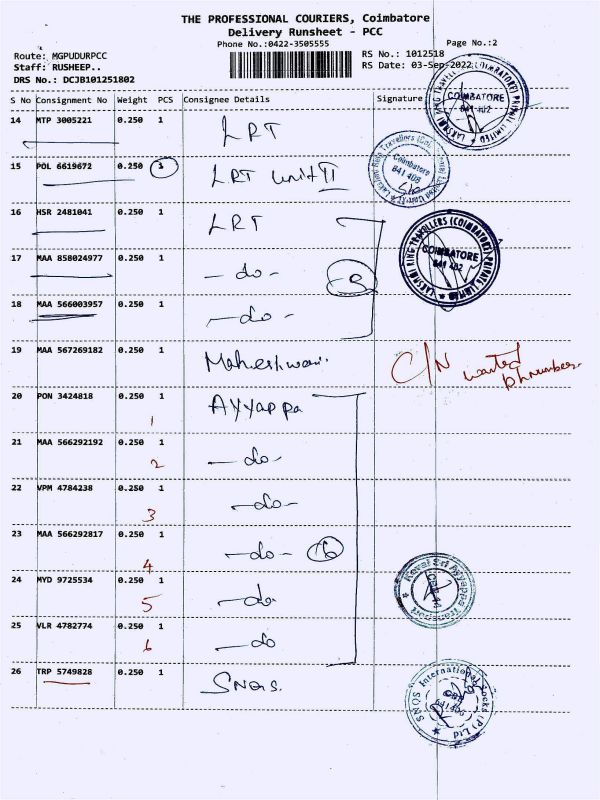 THE PROFESSIONAL COURIERS, Coimbatore
Delivery Runsheet - PCC
Phone No.:0422-3505555
Page No.:2
Route: MGPUDURPCC
RS No.: 1012518
Staff: RUSHEEP..
RS Date: 03-Sep-2022
DRS No.: DCJB101251802
S No Consignment No Weight PCS Consignee Details Signature
14 MTP 3005221 0.250 1 LRT
15 POL 6619672 0.250 LRT Unit II
16 HSR 2481041 0.250 1 LRT
17 MAA 858024977 0.250 1 -do-
18 MAA 566003957 0.250 1 -do-
19 MAA 567269182 0.250 1 Maheshwari. C/N wanted
ph number.
20 PON 3424818 0.250 1 Ayyappa
1
21 MAA 566292192 0.250 1 -do-
2
22 VPM 4784238 0.250 1 -do-
3
23 MAA 566292817 0.250 1 -do- 6
4
24 MYD 9725534 0.250 1 -do
5
25 VLR 4782774 0.250 1 -do
6
26 TRP 5749828 0.250 1 SNQS.
LAKSHMI RING TRAVELLERS (COIMBATORE) PRIVATE LIMITED
COIMBATORE
641 402
Coimbatore
641 406
LAKSHMI RING TRAVELLERS (COIMBATORE) PRIVATE LIMITED
COIMBATORE
641 402
Kovai Sri Ayyappa Transport
SNQS International Socks (P) Ltd